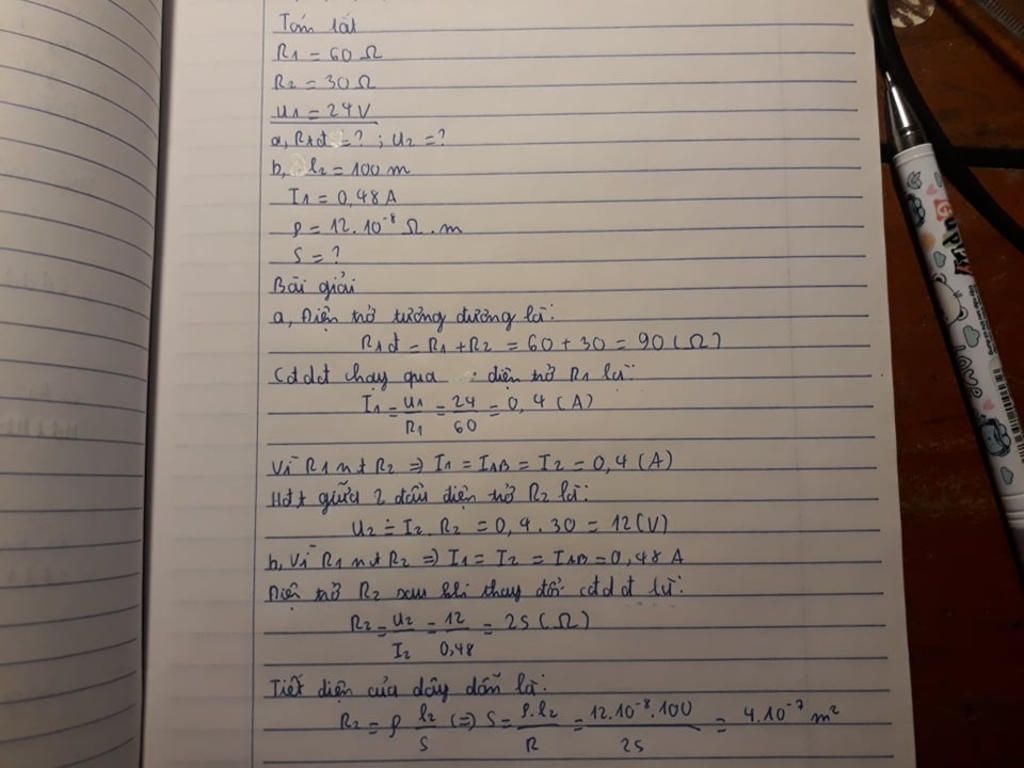 Tóm tắt
R1 = 60 Ω
R2 = 30 Ω
U1 = 24V
a, Rtđ = ? ; U2 = ?
b, l2 = 100 m
I1 = 0,48 A
ρ = 12.10⁻⁸ Ω.m
S = ?
Bài giải
a, Điện trở tương đương là:
Rtđ = R1 + R2 = 60 + 30 = 90 (Ω)
Cđdđ chạy qua điện trở R1 là:
I1 = U1/R1 = 24/60 = 0,4 (A)
Vì R1 nt R2 => I1 = IAB = I2 = 0,4 (A)
Hđt giữa 2 đầu điện trở R2 là:
U2 = I2. R2 = 0,4 . 30 = 12 (V)
b, Vì R1 nt R2 => I1 = I2 = IAB = 0,48 A
Điện trở R2 sau khi thay đổi cđdđ là:
R2 = U2/I2 = 12/0,48 = 25 (Ω)
Tiết diện của dây dẫn là:
R2 = ρ l2/S (=) S = ρ.l2/R = 12.10⁻⁸.100/25 = 4.10⁻⁷ m²